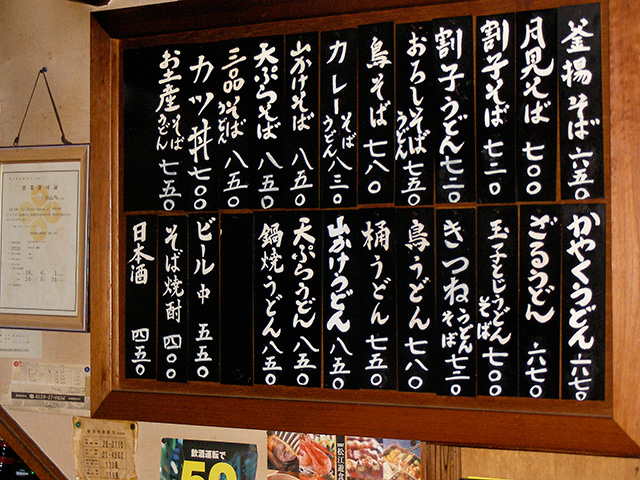 釜揚そば 六五〇
月見そば 七〇〇
割子そば 七二〇
割子うどん 七二〇
おろしそば うどん 七五〇
鳥そば 七八〇
カレーそば うどん 八三〇
山かけそば 八五〇
天ぷらそば 八五〇
三品そば うどん 八五〇
カツ丼 七〇〇
お土産 そば うどん 七五〇
かやくうどん 六七〇
ざるうどん 六七〇
玉子とじうどん そば 七〇〇
きつねうどん そば 七二〇
鳥うどん 七八〇
桶うどん 七五〇
山かけうどん 八五〇
天ぷらうどん 八五〇
鍋焼うどん 八五〇
ビール 中 五五〇
そば焼酎 四〇〇
日本酒 四五〇
飲酒運転で
50
松江遊食